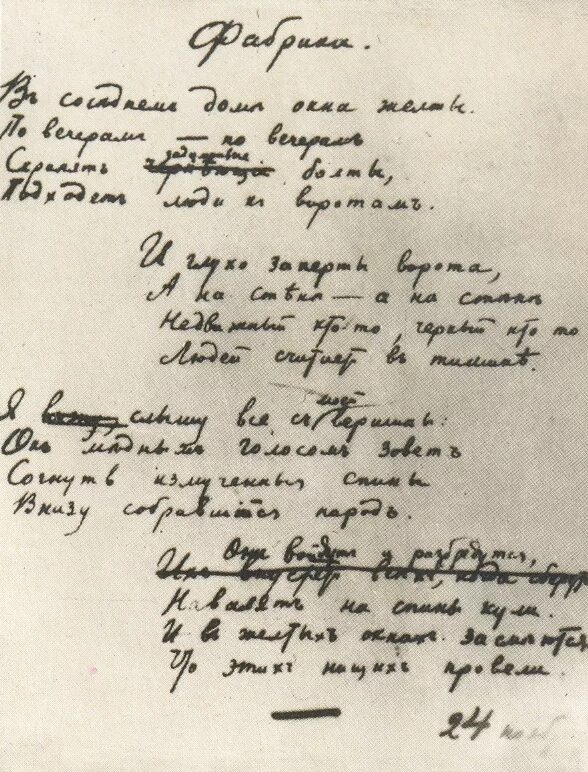 Фабрика.
Въ сосѣднемъ домѣ окна желты.
По вечерамъ — по вечерамъ
Скрипятъ задумчивые болты,
Подходятъ люди къ воротамъ.
И глухо заперты ворота,
А на стѣнѣ — а на стѣнѣ
Недвижный кто-то, черный кто то
Людей считаетъ въ тишинѣ.
Я слышу все съ моей вершины:
Онъ мѣднымъ голосомъ зоветъ
Согнуть измученныя спины
Внизу собравшiйся народъ.
Они войдутъ и разбредутся,
Навалятъ на спины кули.
И въ желтыхъ окнахъ засмѣются,
Что этихъ нищихъ провели.
24